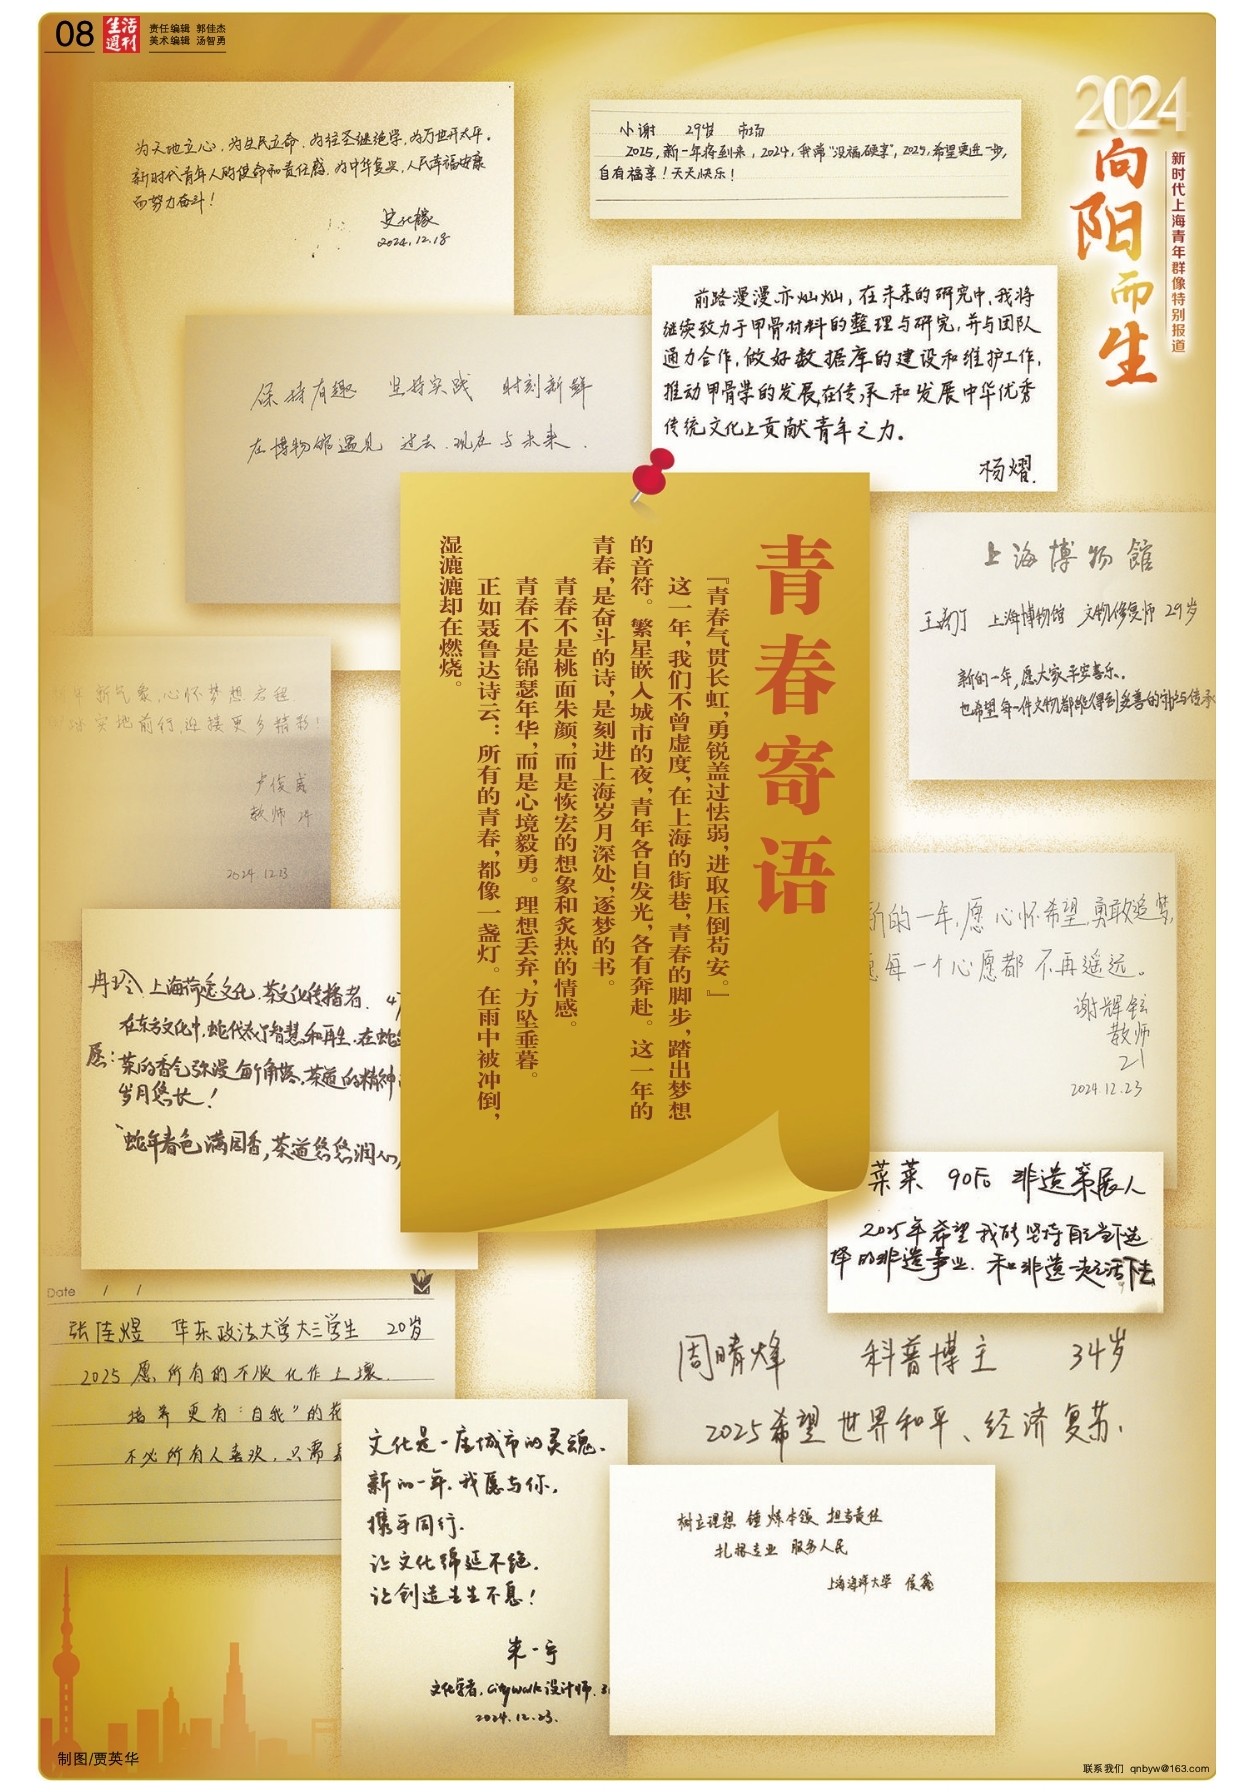 08
生活週刊
责任编辑 郭佳杰
美术编辑 汤智勇
2024
向阳而生
新时代上海青年群像特别报道
为天地立心,为生民立命,为往圣继绝学,为万世开太平。
新时代青年人的使命和责任感,为中华复兴,人民幸福安康
而努力奋斗!
2024.12.18
小谢 29岁 市场
2025,新一年将到来,2024,我常“没福硬享”,2025,希望更进一步,
自有福享!天天快乐!
前路漫漫亦灿灿,在未来的研究中,我将
继续致力于甲骨材料的整理与研究,并与团队
通力合作,做好数据库的建设和维护工作,
推动甲骨学的发展,在传承和发展中华优秀
传统文化上贡献青年之力。
杨熠.
保持有趣 坚持实践 时刻新鲜
在博物馆遇见 过去、现在与未来.
上海博物館
上海博物馆 文物修复师 29岁
新的一年,愿大家平安喜乐.
也希望每一件文物都能得到妥善的守护与传承
青春寄语
『青春气贯长虹,勇锐盖过怯弱,进取压倒苟安。』
这一年,我们不曾虚度,在上海的街巷,青春的脚步,踏出梦想
的音符。繁星嵌入城市的夜,青年各自发光,各有奔赴。这一年的
青春,是奋斗的诗,是刻进上海岁月深处,逐梦的书。
青春不是桃面朱颜,而是恢宏的想象和炙热的情感。
青春不是锦瑟年华,而是心境毅勇。理想丢弃,方坠垂暮。
正如聂鲁达诗云:所有的青春,都像一盏灯。在雨中被冲倒,
湿漉漉却在燃烧。
年 新气象,心怀梦想启程
实地前行,迎接更多精彩!
教师 24
2024.12.23
新的一年,愿心怀希望,勇敢追梦,
愿每一个心愿都不再遥远。
谢辉铉
教师
21
2024.12.23
冉玲 上海荷逸文化.茶文化传播者.
在东方文化中,蛇代表了智慧和再生.在蛇
愿:茶的香气弥漫每个角落,茶道的精神
岁月悠长!
蛇年春色满园香,茶道悠悠润人
菜菜 90后 非遗策展人
2025年希望我能坚持自己当下选
择的非遗事业.和非遗一起活下去
Date / /
张佳煜 华东政法大学大三学生 20岁
2025 愿所有的不顺化作土壤.
培养更有“自我”的花
不必所有人喜欢,只需
周晴烽 科普博主 34岁
2025希望世界和平、经济复苏.
文化是一座城市的灵魂.
新的一年.我愿与你,
携手同行.
让文化绵延不绝.
让创造生生不息!
朱一宁
文化学者,citywalk设计师.
2024.12.23.
树立理想 锤炼本领 担当责任
扎根专业 服务人民
上海海洋大学 侯鑫
制图/贾英华
联系我们 qnbyw@163.com